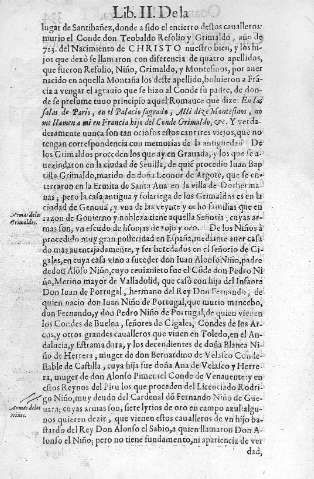 Lib. II. De la
lugar de Santibañez, donde a sido el encierro destos caualleros
murio el Conde don Teobaldo Resolio y Grimaldo, año de
723. del Nacimiento de CHRISTO nuestro bien, y los hi-
jos que dexò se llamaron con diferencia de quatro apellidos,
que fueron Resolio, Niño, Grimaldo, y Montesinos, por auer
nacido en aquella Montaña los deste apellido, boluieron a Frã-
cia a vengar el agrauio que se hizo al Conde su padre, de don-
de se presume tuuo principio aquel Romance que dize En las
salas de Paris, en el Palacio sagrado, Alli dize Montesinos, no
me llamen a mi en Francia hijo del Conde Grimaldo, &c. Y verda-
deramente nunca son tan ociosos estos cantares viejos, que no
tengan correspondencia con memorias de la antiguedad De
los Grimaldos proceden los que ay en Granada, y los que se a-
uezindaron en la ciudad de Seuilla, de quiē procedio Iuan Bap-
tista Grimaldo, marido de doña Leonor de Argote, que se en-
terraron en la Ermita de Santa Ana en la villa de Dos her-
manas, pero la casa antigua y solariega de los Grimaldos es en la
ciudad de Genoua, y vna de las veynte y ocho familias que en
razon de Gouierno y nobleza tiene aquella Señoria, cuyas ar-
Armas de los
Grimaldos.
mas son, vn escudo de lisonjas de rojo y oro. De los Niños à
procedido muy gran posteridad en España, mediante auer casa-
do mas auentajadamente, y ser heredados en el señorio de Ci-
gales, en cuya casa vino a suceder don Iuan Alonso Niño, padre
de don Alõso Niño, cuyo
don Pedro Ni-
ño, Merino mayor de Valladolid, que casò con hija del Infante
Don Iuan de Portugal, hermano del Rey Don Fernando, de
quien nacio don Iuan Niño de Portugal, que murio mancebo,
don Fernando, y don Pedro Niño de Portugal, de quien vienen
los Condes de Buelna, señores de Cigales, Condes de los Ar-
cos, y otros grandes caualleros que viuen en Toledo, en el An-
daluzia, y Estramadura, y los decendientes de doña Blanca Ni-
ño de Herrera, muger de don Bernardino de Velasco Conde-
stable de Castilla, cuya hija fue doña Ana de Velasco y Herre-
ra, muger de don Alonso Pimentel Conde de Venauente, y en
estos Reynos del Piru los que proceden del Licenciado Rodri-
go Niño, muy deudo del Cardenal dõ Fernando Niño de Gue-
Armas de los
Niños.
uara, cuyas armas son, siete lyrios de oro en campo azul: algu-
nos quieren dezir, que vienen estos caualleros de vn hijo ba-
stardo del Rey Don Alonso el Sabio, a quien llamaron Don A-
lonso el Niño, pero no tiene fundamento, ni apariencia de ver
dad,